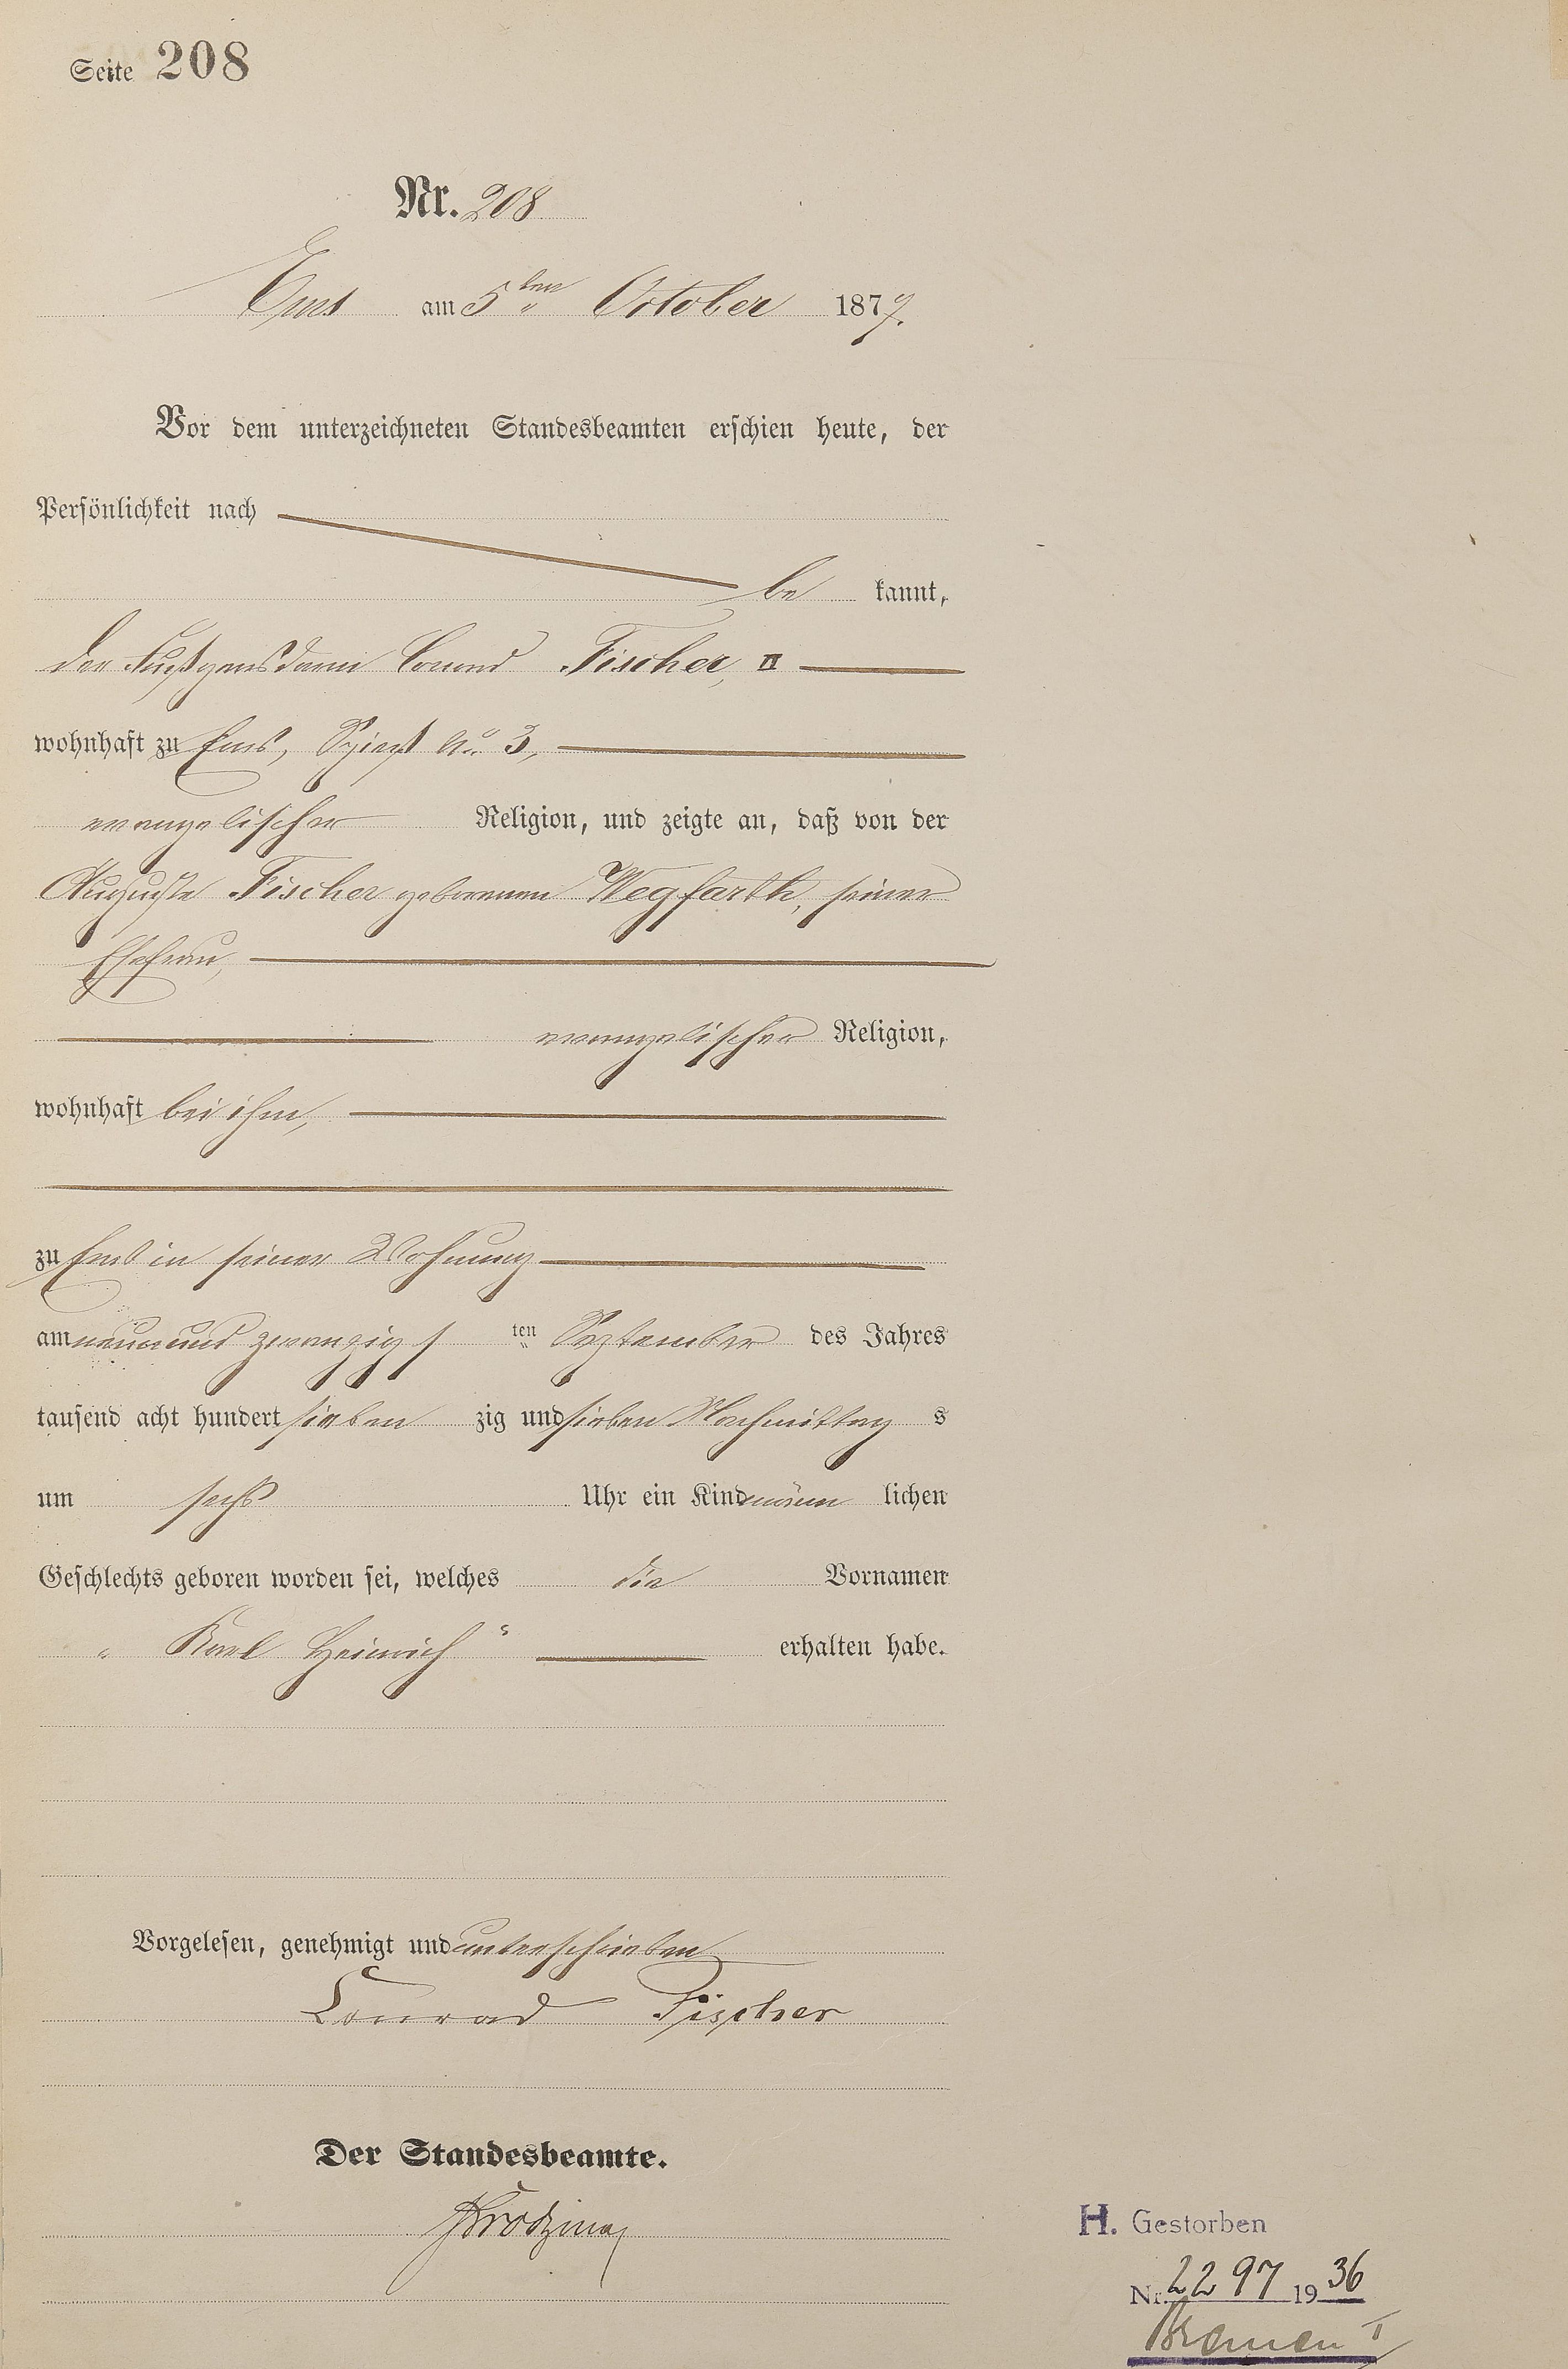 Seite 208
Nr. 208
Ems am 5ten October 1877.
Vor dem unterzeichneten Standesbeamten erschien heute, der
Persönlichkeit nach
be kannt,
der Conrad Fischer, II
wohnhaft zu Ems, No. 3,
evangelischer Religion, und zeigte an, daß von der
Auguste Fischer geborenen Wegfarth, seiner
Ehefrau,
evangelischer Religion,
wohnhaft bei ihm,
zu Ems in seiner Wohnung
am neunundzwanzigs ten September des Jahres
tausend acht hundert sieben zig und sieben Nachmittag s
um sechs Uhr ein Kind männ lichen
Geschlechts geboren worden sei, welches die Vornamen
„ Karl Heinrich “ erhalten habe.
Vorgelesen, genehmigt und unterschrieben
Conrad Fischer
Der Standesbeamte.
H. Gestorben
Nr. 2297 1936
Bremen I